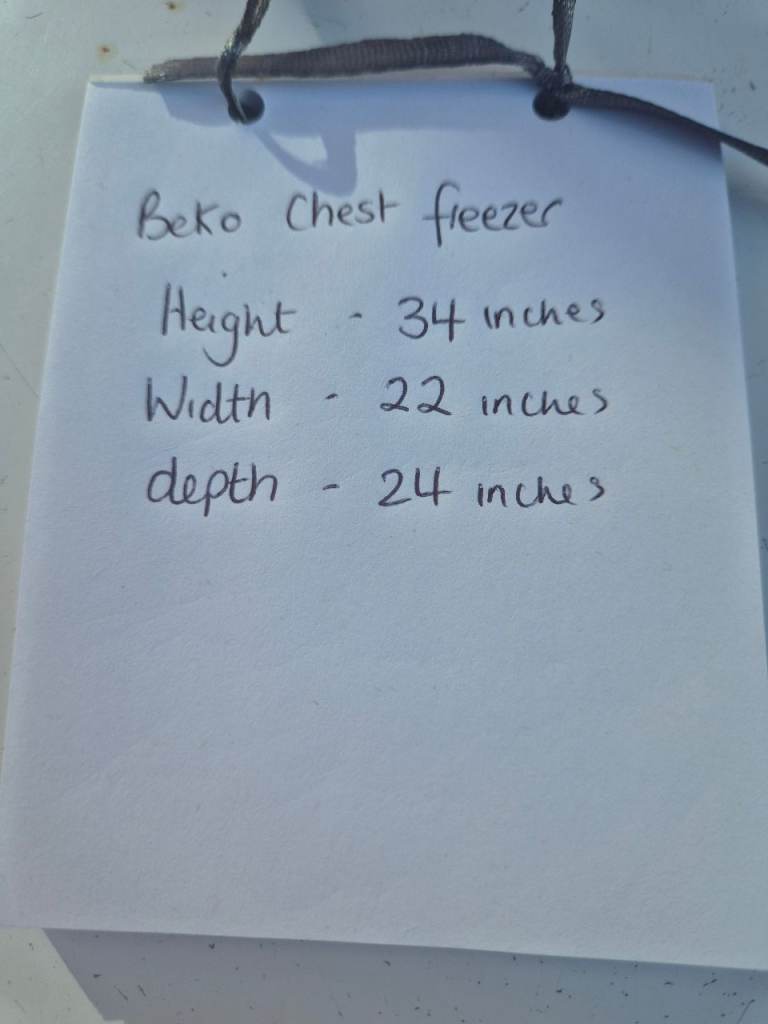 Beko Chest freezer
Height - 34 inches
Width - 22 inches
depth - 24 inches